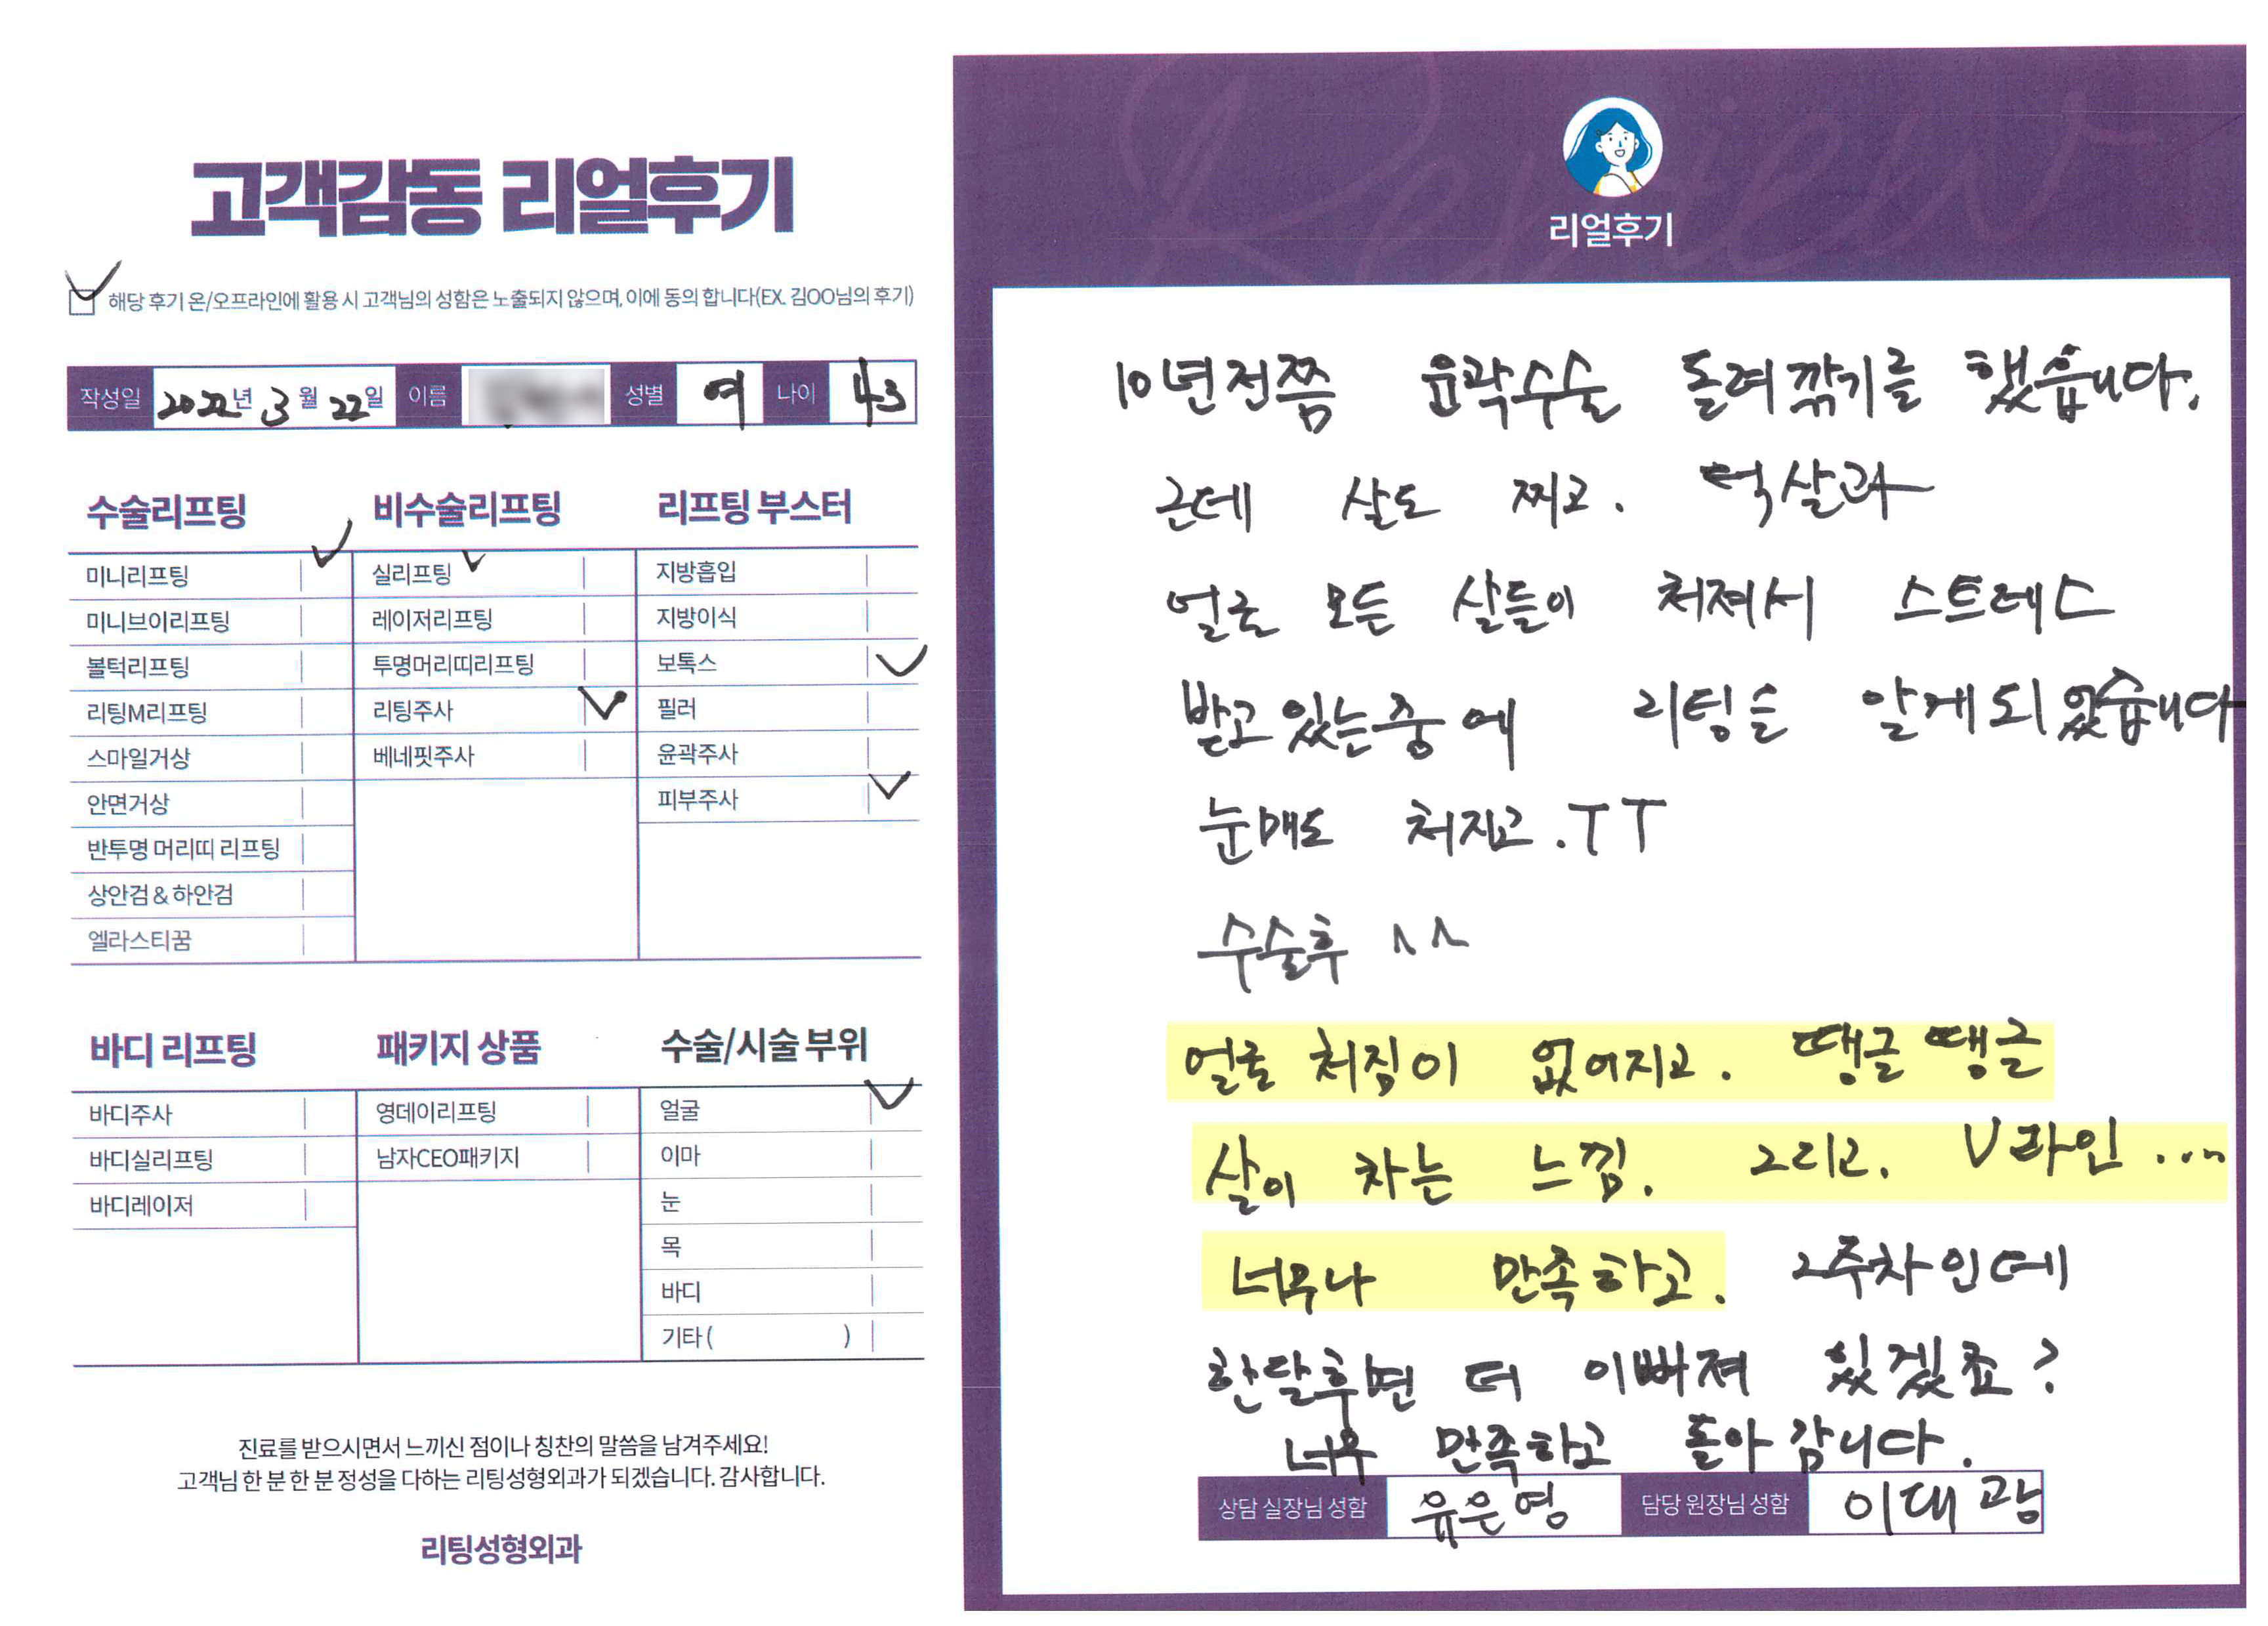 고객감동 리얼후기
해당 후기 온/오프라인에 활용 시 고객님의 성함은 노출되지 않으며, 이에 동의 합니다(EX. 김OO님의 후기)
작성일 2022년 3월 22일 이름 성별 여 나이 43
수술리프팅
미니리프팅
미니브이리프팅
볼턱리프팅
리팅M리프팅
스마일거상
안면거상
반투명 머리띠 리프팅
상안검 & 하안검
엘라스티꿈
비수술리프팅
실리프팅
레이저리프팅
투명머리띠리프팅
리팅주사
베네핏주사
리프팅 부스터
지방흡입
지방이식
보톡스
필러
윤곽주사
피부주사
바디 리프팅
바디주사
바디실리프팅
바디레이저
패키지 상품
영데이리프팅
남자CEO패키지
수술/시술 부위
얼굴
이마
눈
목
바디
기타 ( )
진료를 받으시면서 느끼신 점이나 칭찬의 말씀을 남겨주세요!
고객님 한 분 한 분 정성을 다하는 리팅성형외과가 되겠습니다. 감사합니다.
리팅성형외과
Review
리얼후기
10년전쯤 윤곽수술 돌려깎기를 했습니다.
근데 살도 찌고. 턱살과
얼굴 모든 살들이 처져서 스트레스
받고 있는중에 리팅을 알게되었습니다
눈매도 처지고. TT
수술후 ^^
얼굴 처짐이 없어지고. 땡글땡글
살이 차는 느낌. 그리고. V라인...
너무나 만족하고. 2주차인데
한달후면 더 이뻐져 있겠죠?
너무 만족하고 돌아갑니다.
상담 실장님 성함 유은영 담당 원장님 성함 이대광